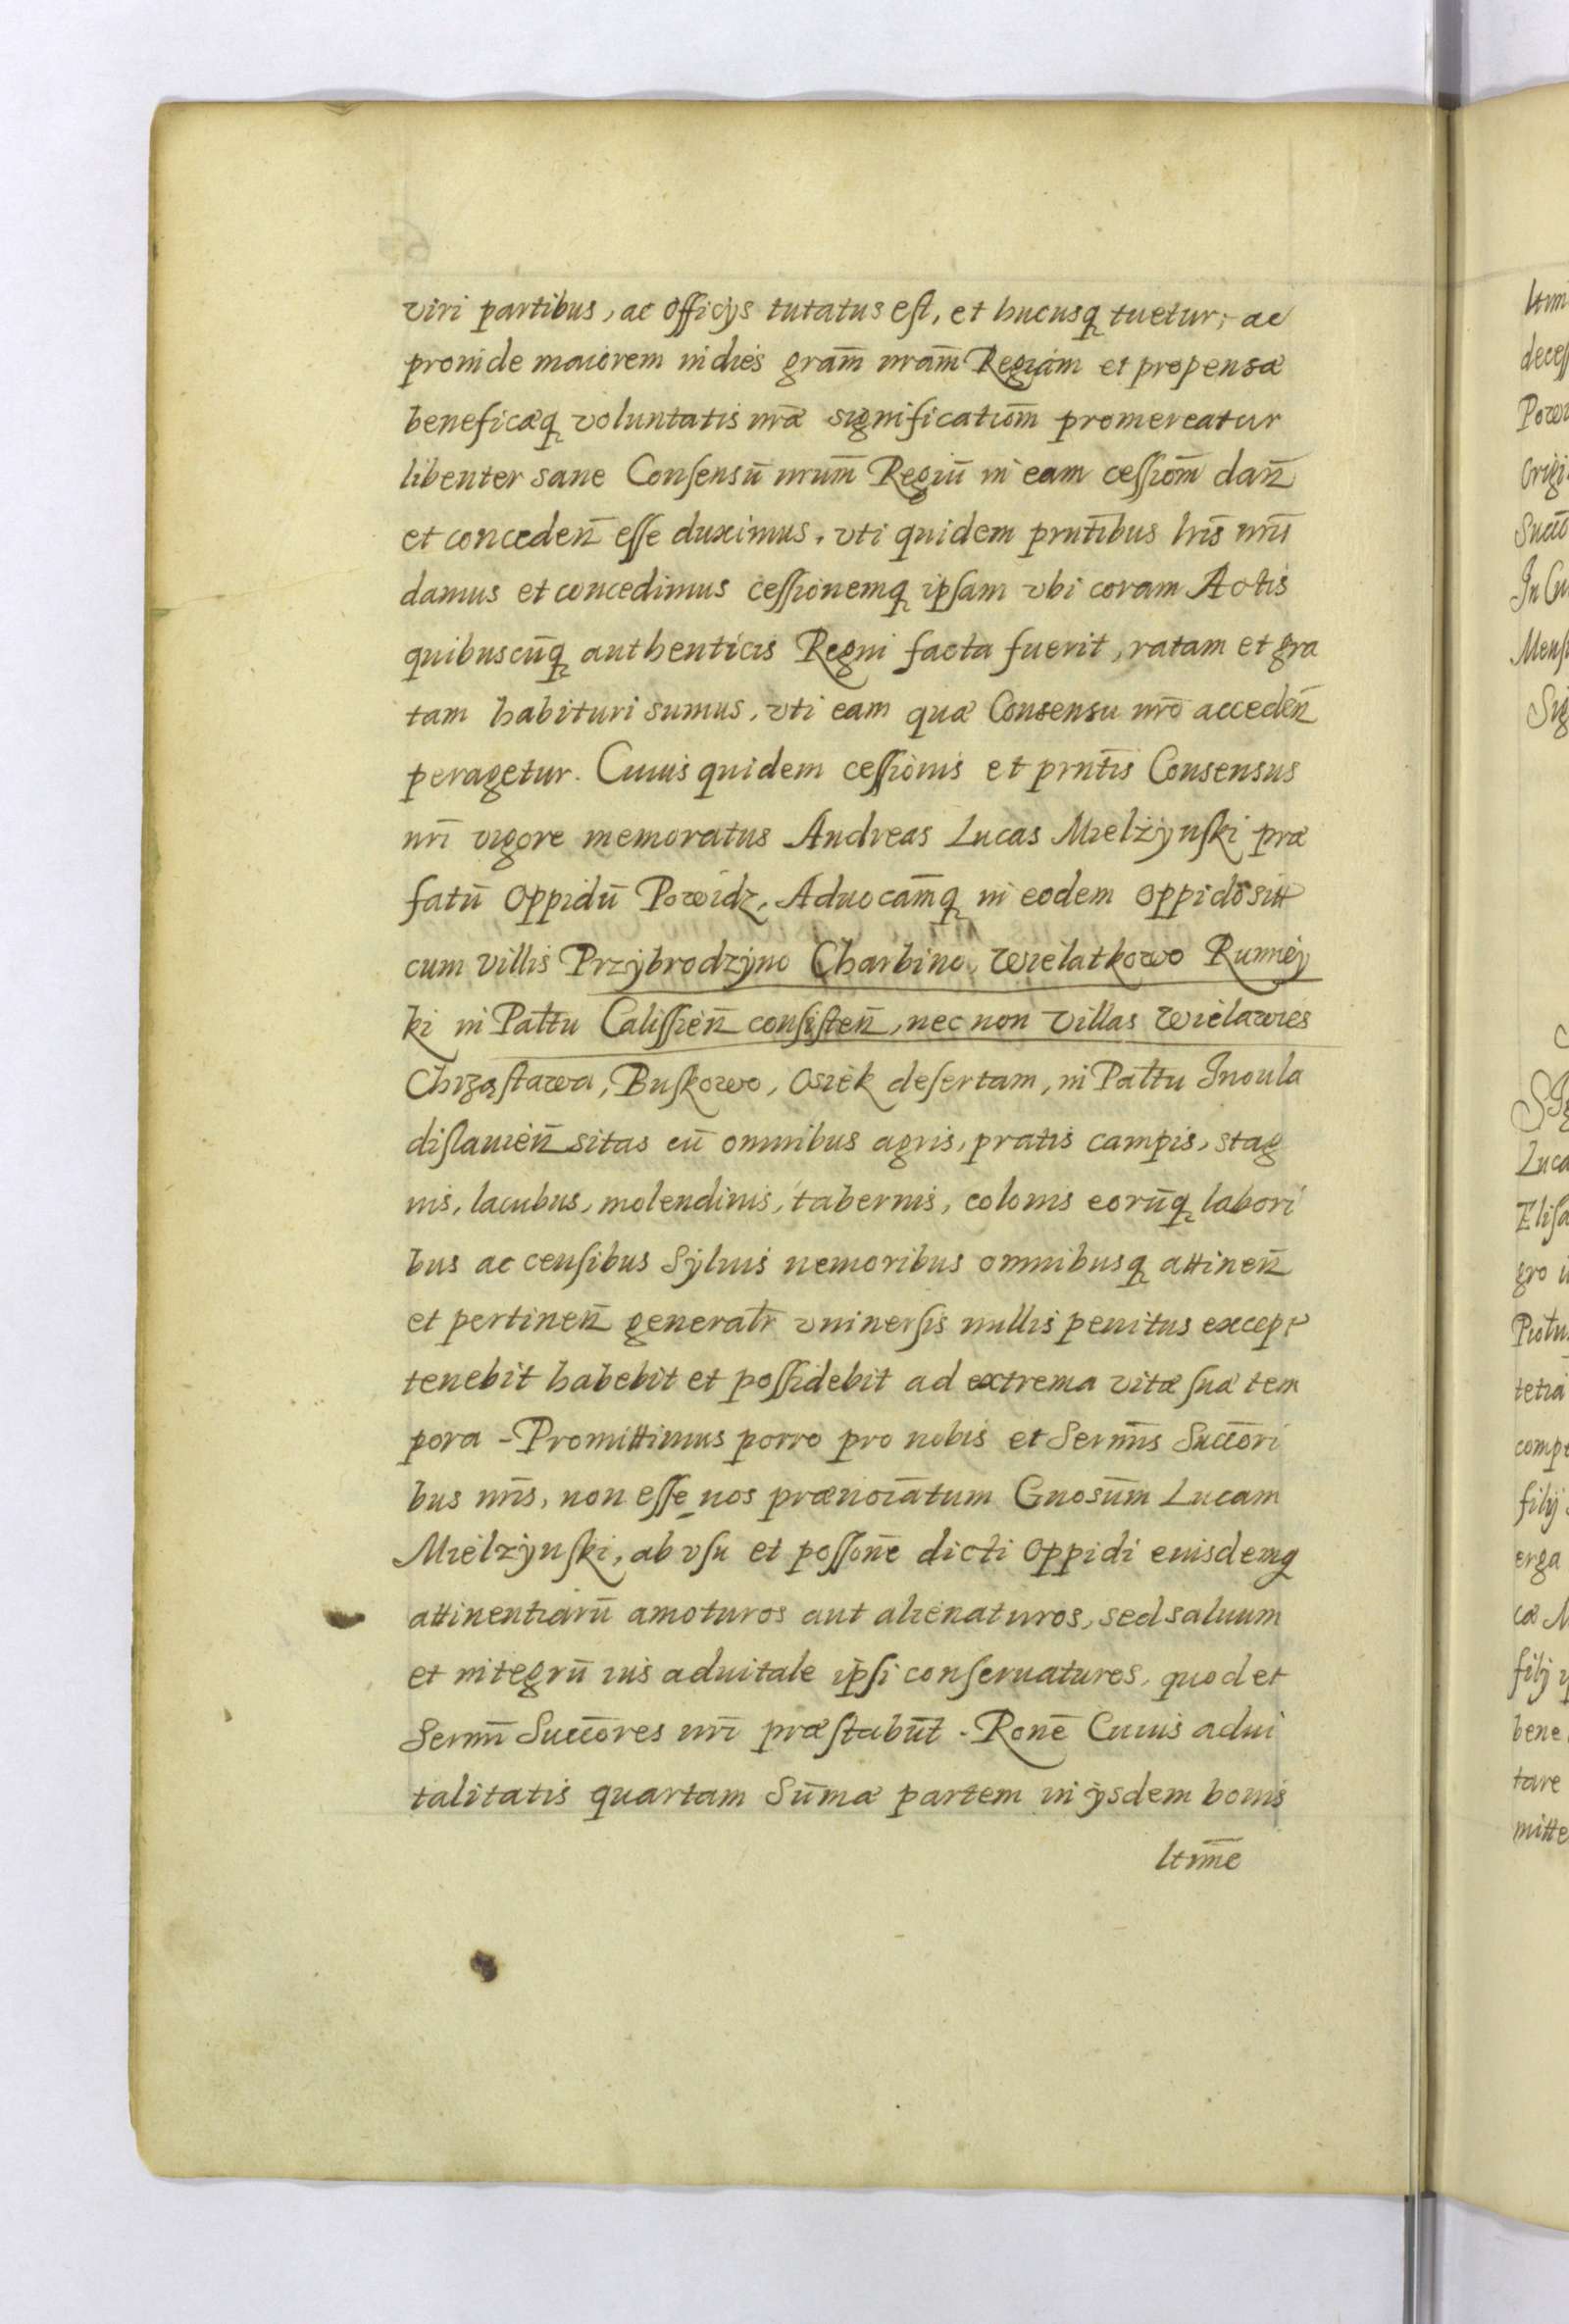 viri partibus, ac officijs tutatus est, et hucusq tuetur, ac
proinde maiorem indies gram̄ nram̄ Regiam et propensæ
beneficæq voluntatis nr̄æ significatiom̄ promereatur
libenter sane Consensū nrum̄ Regiū in eam cessiom̄ dan̄
et conceden̄ esse duximus, vti quidem pnt̄ibus lr̄is nr̄is
damus et concedimus cessionemq ipsam vbi coram Actis
quibuscūq authenticis Regni facta fuerit, ratam et gra
tam habituri sumus, vti eam quæ Consensu nr̄o acceden̄
peragetur. Cuius quidem cessionis et prnt̄is Consensus
nr̄i vigore memoratus Andreas Lucas Mielżÿnski præ
fatū Oppidū Powidz, Aduocam̄q in eodem Oppido sitt
cum villis Przÿbrodzÿno Charbino, Wielatkowo Rumieÿ
ki in Paltu Calissien̄ consisten̄, nec non villas Wielawies
Chrząstawa, Buskowo, Osiek desertam, in Paltu Inoula
dislauien̄ sitas cū omnibus agris, pratis campis, stag
nis, lacubus, molendinis, tabernis, colonis eorūq labori
bus ac censibus Sÿluis nemoribus omnibusq attinen̄
et pertinen̄ generalr̄ vniuersis nullis penitus except
tenebit habebit et possidebit ad extrema vitæ suæ tem
pora - Promittimus porro pro nobis et Serm̄is Succōri
bus nr̄is, non esse nos prænoīatum Gnosum̄ Lucam
Mielzÿnski, ab vsu et possōne dicti Oppidi eiusdemq
attinentiarū amoturos aut alienaturos, sed saluum
et integrū ius aduitale ipsi conseruaturos, quod et
Serm̄i Succōres nr̄i præstabūt. Ronē Cuius adui
talitatis quartam Sūmæ partem in ijsdem bonis
ltim̄e
Powi
gro
tetra
filij
erga
bene
tare
mitte